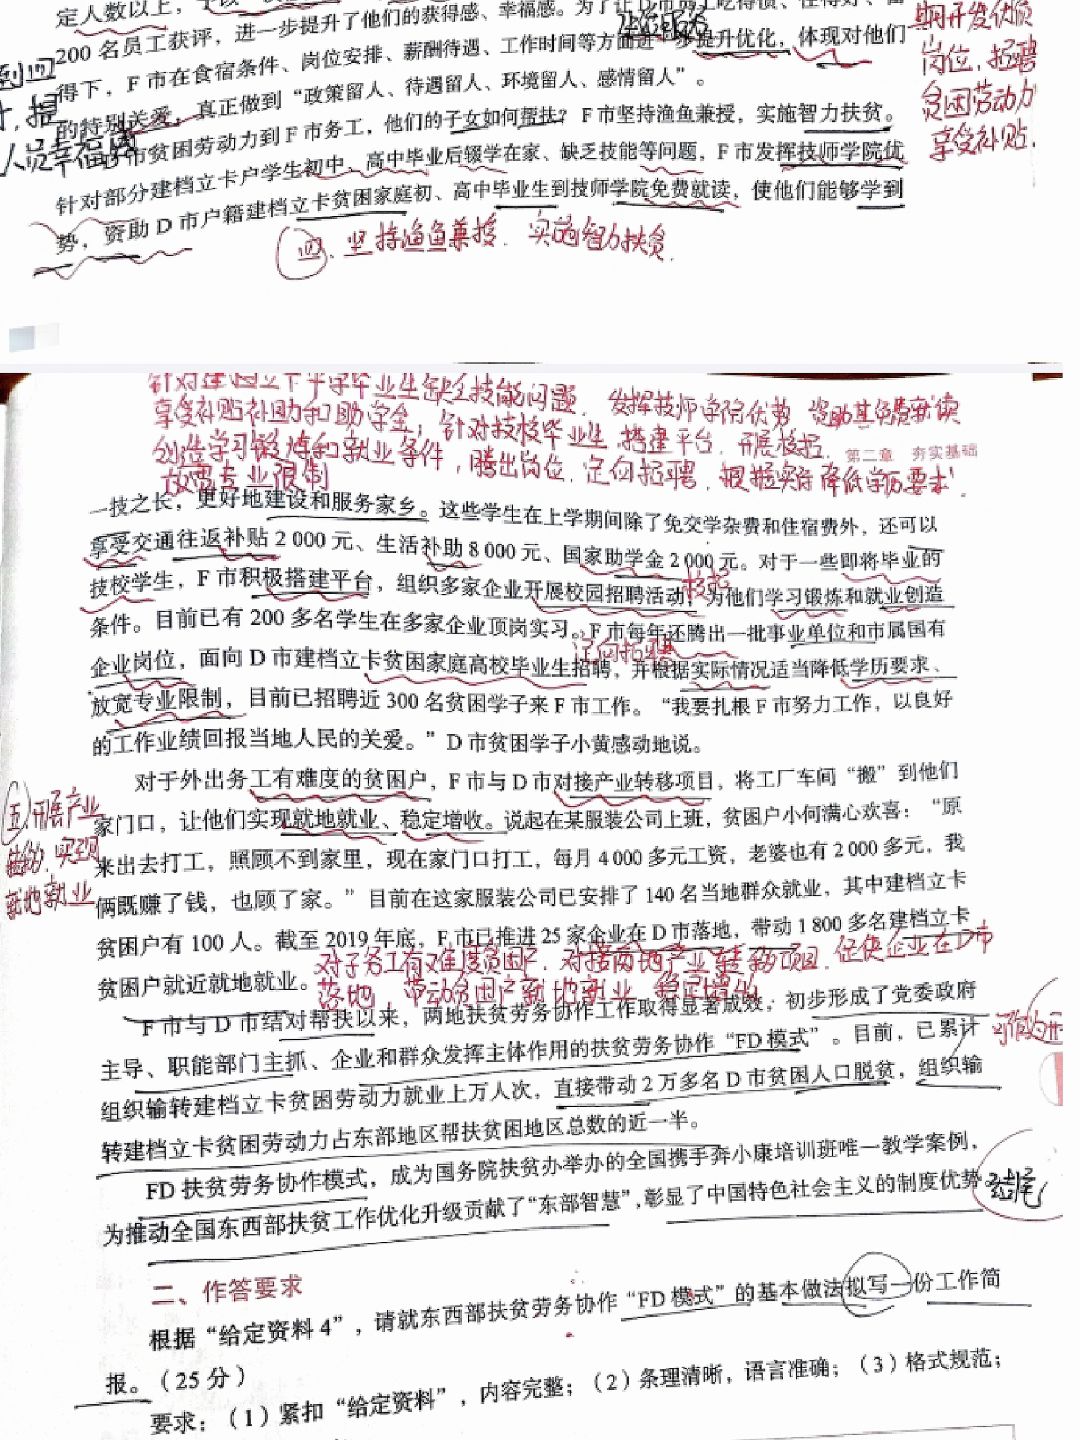 定人数以上，
200 名员工获评，进一步提升了他们的获得感、幸福感。为了让 D 市员工吃得惯、住得好、
得下，F 市在食宿条件、岗位安排、薪酬待遇、工作时间等方面进一步提升优化，体现对他们
的特别关爱，真正做到“政策留人、待遇留人、环境留人、感情留人”。
市贫困劳动力到 F 市务工，他们的子女如何帮扶？F 市坚持渔鱼兼授，实施智力扶贫。
针对部分建档立卡户学生初中、高中毕业后辍学在家、缺乏技能等问题，F 市发挥技师学院优
势，资助 D 市户籍建档立卡贫困家庭初、高中毕业生到技师学院免费就读，使他们能够学到
期开发优质
岗位，招聘
贫困劳动力
享受补贴.
人员幸福感
四、坚持渔鱼兼授，实施智力扶贫.
毕业生缺乏技能问题，发挥技师学院优势，资助其免费就读
享受补贴补助和助学金；针对技校毕业生，搭建平台，开展校招，
创造学习锻炼和就业条件，腾出岗位，定向招聘，根据实际降低学历要求，
放宽专业限制
第二章 夯实基础
一技之长，更好地建设和服务家乡。这些学生在上学期间除了免交学杂费和住宿费外，还可以
享受交通往返补贴 2 000 元、生活补助 8 000 元、国家助学金 2 000 元。对于一些即将毕业的
技校学生，F 市积极搭建平台，组织多家企业开展校园招聘活动，为他们学习锻炼和就业创造
校招
条件。目前已有 200 多名学生在多家企业顶岗实习。F 市每年还腾出一批事业单位和市属国有
定向招聘
企业岗位，面向 D 市建档立卡贫困家庭高校毕业生招聘，并根据实际情况适当降低学历要求、
放宽专业限制，目前已招聘近 300 名贫困学子来 F 市工作。“我要扎根 F 市努力工作，以良好
的工作业绩回报当地人民的关爱。”D 市贫困学子小黄感动地说。
对于外出务工有难度的贫困户，F 市与 D 市对接产业转移项目，将工厂车间“搬”到他们
家门口，让他们实现就地就业、稳定增收。说起在某服装公司上班，贫困户小何满心欢喜：“原
来出去打工，照顾不到家里，现在家门口打工，每月 4 000 多元工资，老婆也有 2 000 多元，我
俩既赚了钱，也顾了家。”目前在这家服装公司已安排了 140 名当地群众就业，其中建档立卡
贫困户有 100 人。截至 2019 年底，F 市已推进 25 家企业在 D 市落地，带动 1 800 多名建档立卡
贫困户就近就地就业。
五、开展产业
实现
就地就业
对于务工有难度贫困户，对接两地产业转移项目，促使企业在D市
落地，带动贫困户就地就业，稳定增收
F 市与 D 市结对帮扶以来，两地扶贫劳务协作工作取得显著成效，初步形成了党委政府
主导、职能部门主抓、企业和群众发挥主体作用的扶贫劳务协作“FD 模式”。目前，已累计
组织输转建档立卡贫困劳动力就业上万人次，直接带动 2 万多名 D 市贫困人口脱贫，组织输
转建档立卡贫困劳动力占东部地区帮扶贫困地区总数的近一半。
FD 扶贫劳务协作模式，成为国务院扶贫办举办的全国携手奔小康培训班唯一教学案例，
为推动全国东西部扶贫工作优化升级贡献了“东部智慧”，彰显了中国特色社会主义的制度优势。
结尾
二、作答要求
根据“给定资料 4”，请就东西部扶贫劳务协作“FD 模式”的基本做法拟写一份工作简
报。（25 分）
要求：（1）紧扣“给定资料”，内容完整；（2）条理清晰，语言准确；（3）格式规范；